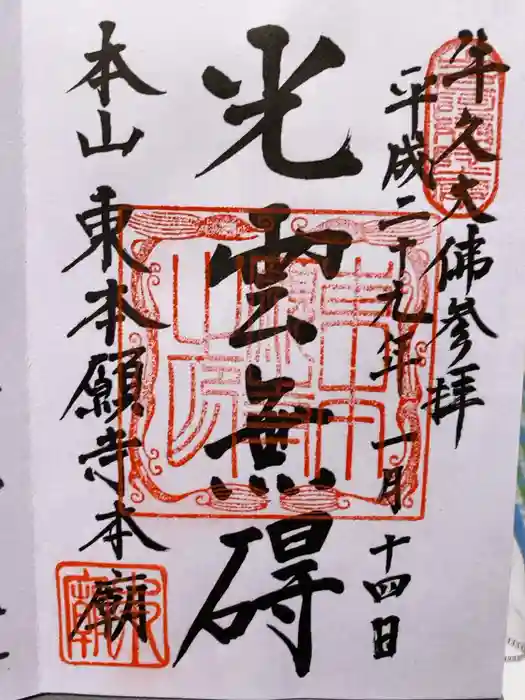 牛久大佛参拝
平成二十九年一月十四日
光雲無碍
本山東本願寺本廟